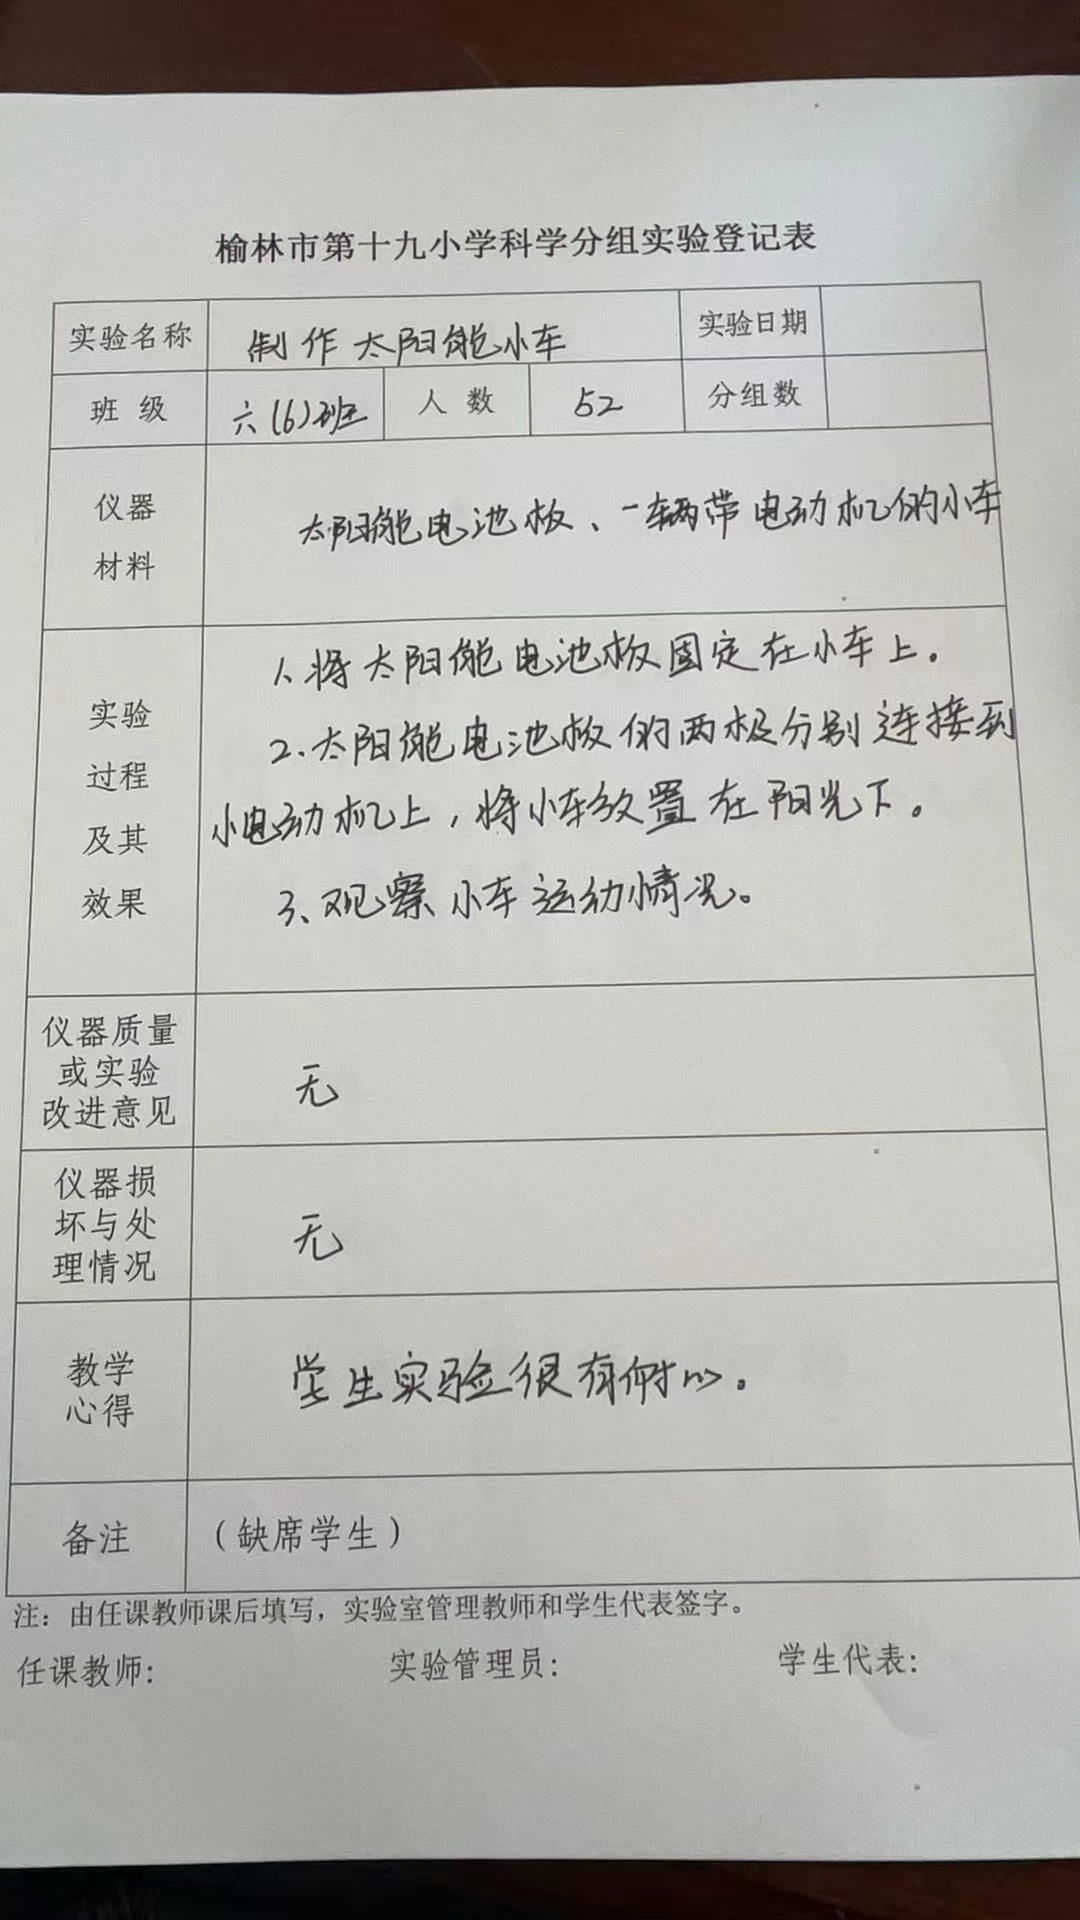 榆林市第十九小学科学分组实验登记表
实验名称 制作太阳能小车 实验日期
班 级 六(6)班 人 数 52 分组数
仪器
材料
太阳能电池板、一辆带电动机的小车
实验
过程
及其
效果
1、将太阳能电池板固定在小车上。
2.太阳能电池板的两极分别连接到
小电动机上,将小车放置在阳光下。
3、观察小车运动情况。
仪器质量
或实验
改进意见
无
仪器损
坏与处
理情况
无
教学
心得
学生实验很有耐心.
备注 (缺席学生)
注:由任课教师课后填写,实验室管理教师和学生代表签字。
任课教师: 实验管理员: 学生代表: